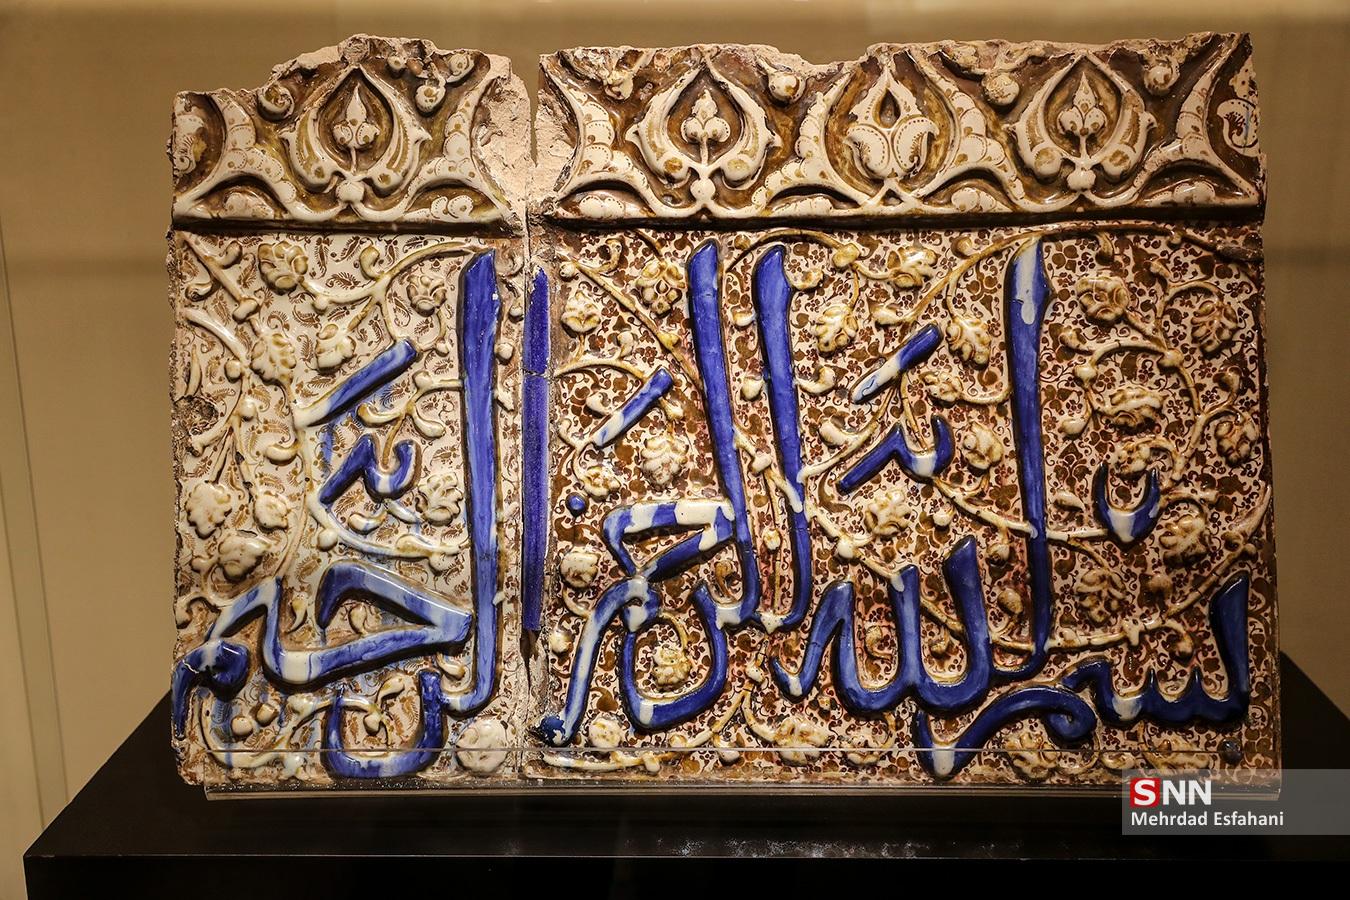 بسم الله الرحمن الرحیم
SNN
Mehrdad Esfahani